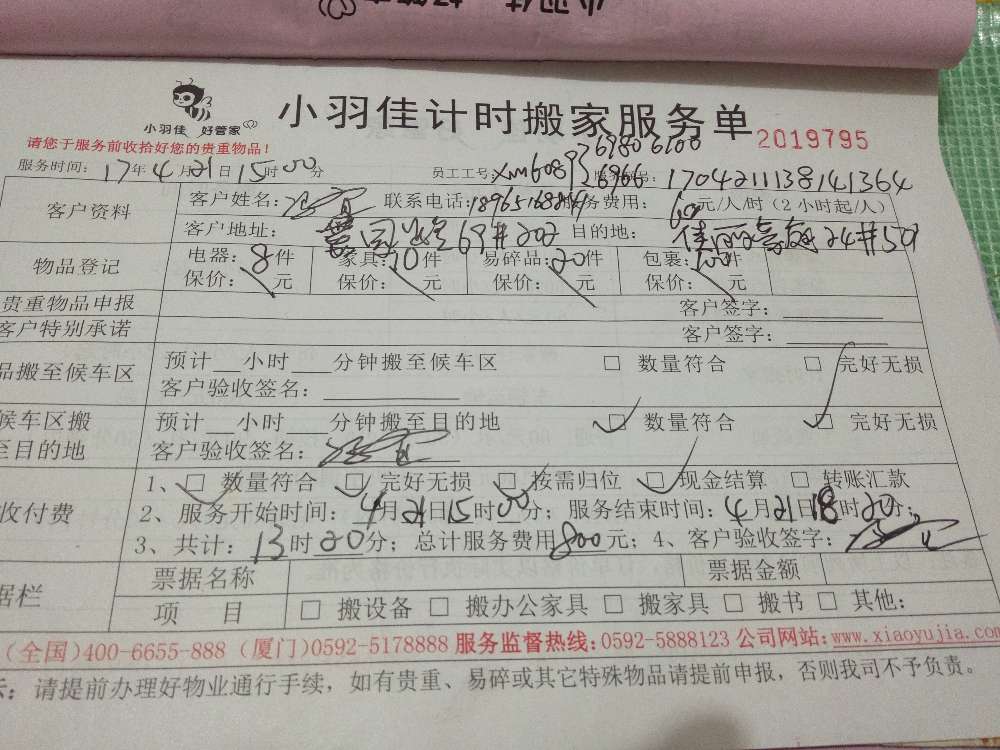 小羽佳 好管家
小羽佳计时搬家服务单 2019795
请您于服务前收拾好您的贵重物品！
69806100
服务时间：17年4月21日15时00分 员工工号：xm6089 26966 1704211138141364
客户资料 客户姓名： 联系电话： 服务费用：60元/人/时（2小时起/人）
客户地址： 69#202 目的地： 24#501
物品登记 电器：8件 家具：10件 易碎品：20件 包裹：100件
保价： 元 保价： 元 保价： 元 保价： 元
贵重物品申报 客户签字：
客户特别承诺 客户签字：
品搬至候车区 预计 小时 分钟搬至候车区 □ 数量符合 □ 完好无损
客户验收签名：
候车区搬 预计 小时 分钟搬至目的地 □ 数量符合 □ 完好无损
至目的地 客户验收签名：
1、□ 数量符合 □ 完好无损 □ 按需归位 □ 现金结算 □ 转账汇款
收付费 2、服务开始时间：4月21日15时00分；服务结束时间：4月21日18时20分；
3、共计：13时20分；总计服务费用800元；4、客户验收签字：
据栏 票据名称 票据金额
项 目 □ 搬设备 □ 搬办公家具 □ 搬家具 □ 搬书 □ 其他：
（全国）400-6655-888（厦门）0592-5178888 服务监督热线：0592-5888123 公司网站：www.xiaoyujia.com
示：请提前办理好物业通行手续，如有贵重、易碎或其它特殊物品请提前申报，否则我司不予负责。